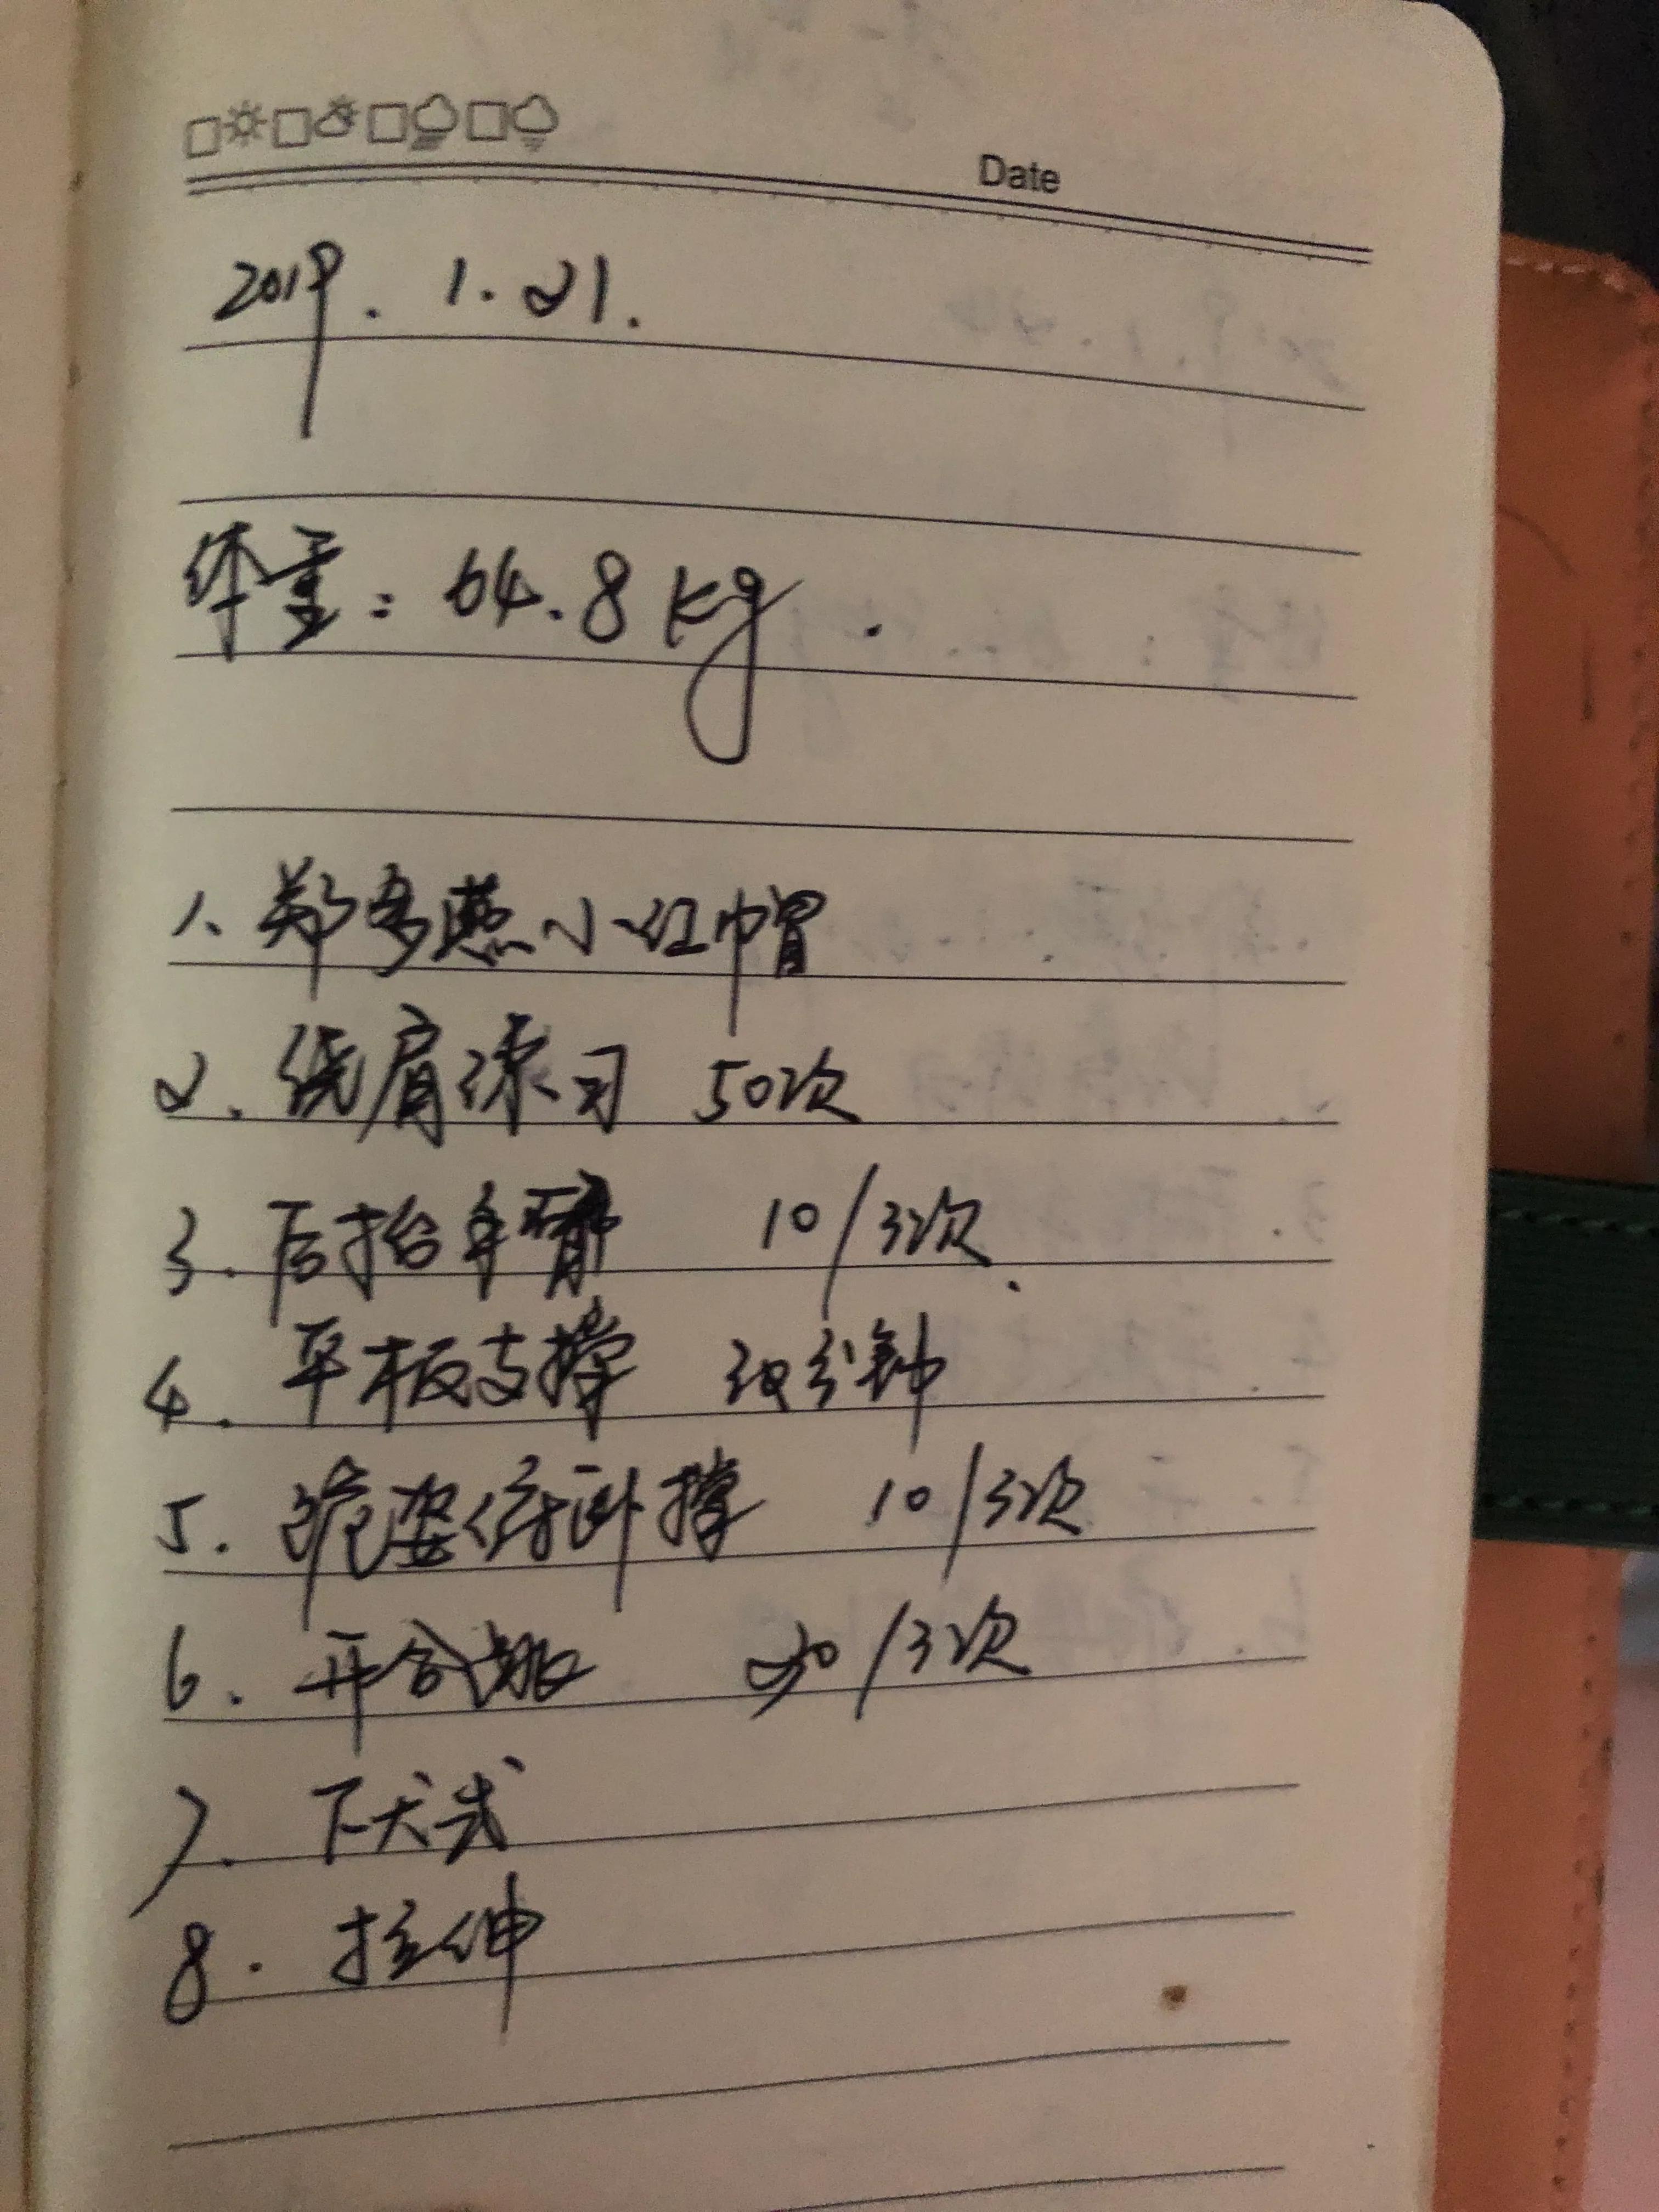 Date
2019. 1.21.
体重：64.8kg.
1、郑多燕小红帽
2. 绕肩练习 50次
3. 后抬手臂 10/3次.
4. 平板支撑 分钟
5. 跪姿俯卧撑 10/3次
6. 开合跳 /3次
7. 下犬式
8. 拉伸